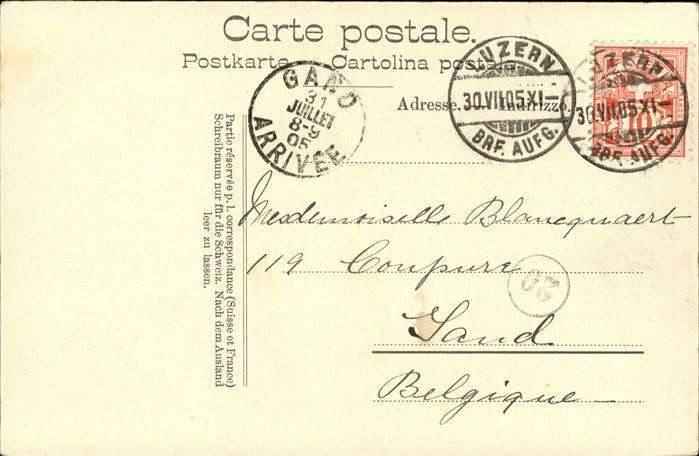 Carte postale.
Postkarte. Cartolina postale.
Adresse. Indirizzo.
LUZERN
30.VII.05.XI–
BRF. AUFG.
LUZERN
30.VII.05.XI–
BRF. AUFG.
10
GAND
31
JUILLET
8-9
05
ARRIVÉE
Partie réservée p. l. correspondance (Suisse et France)
Schreibraum nur für die Schweiz. Nach dem Ausland
leer zu lassen.
Mesdemoiselle Blancquaert
119 Coupure
20
Gand
Belgique